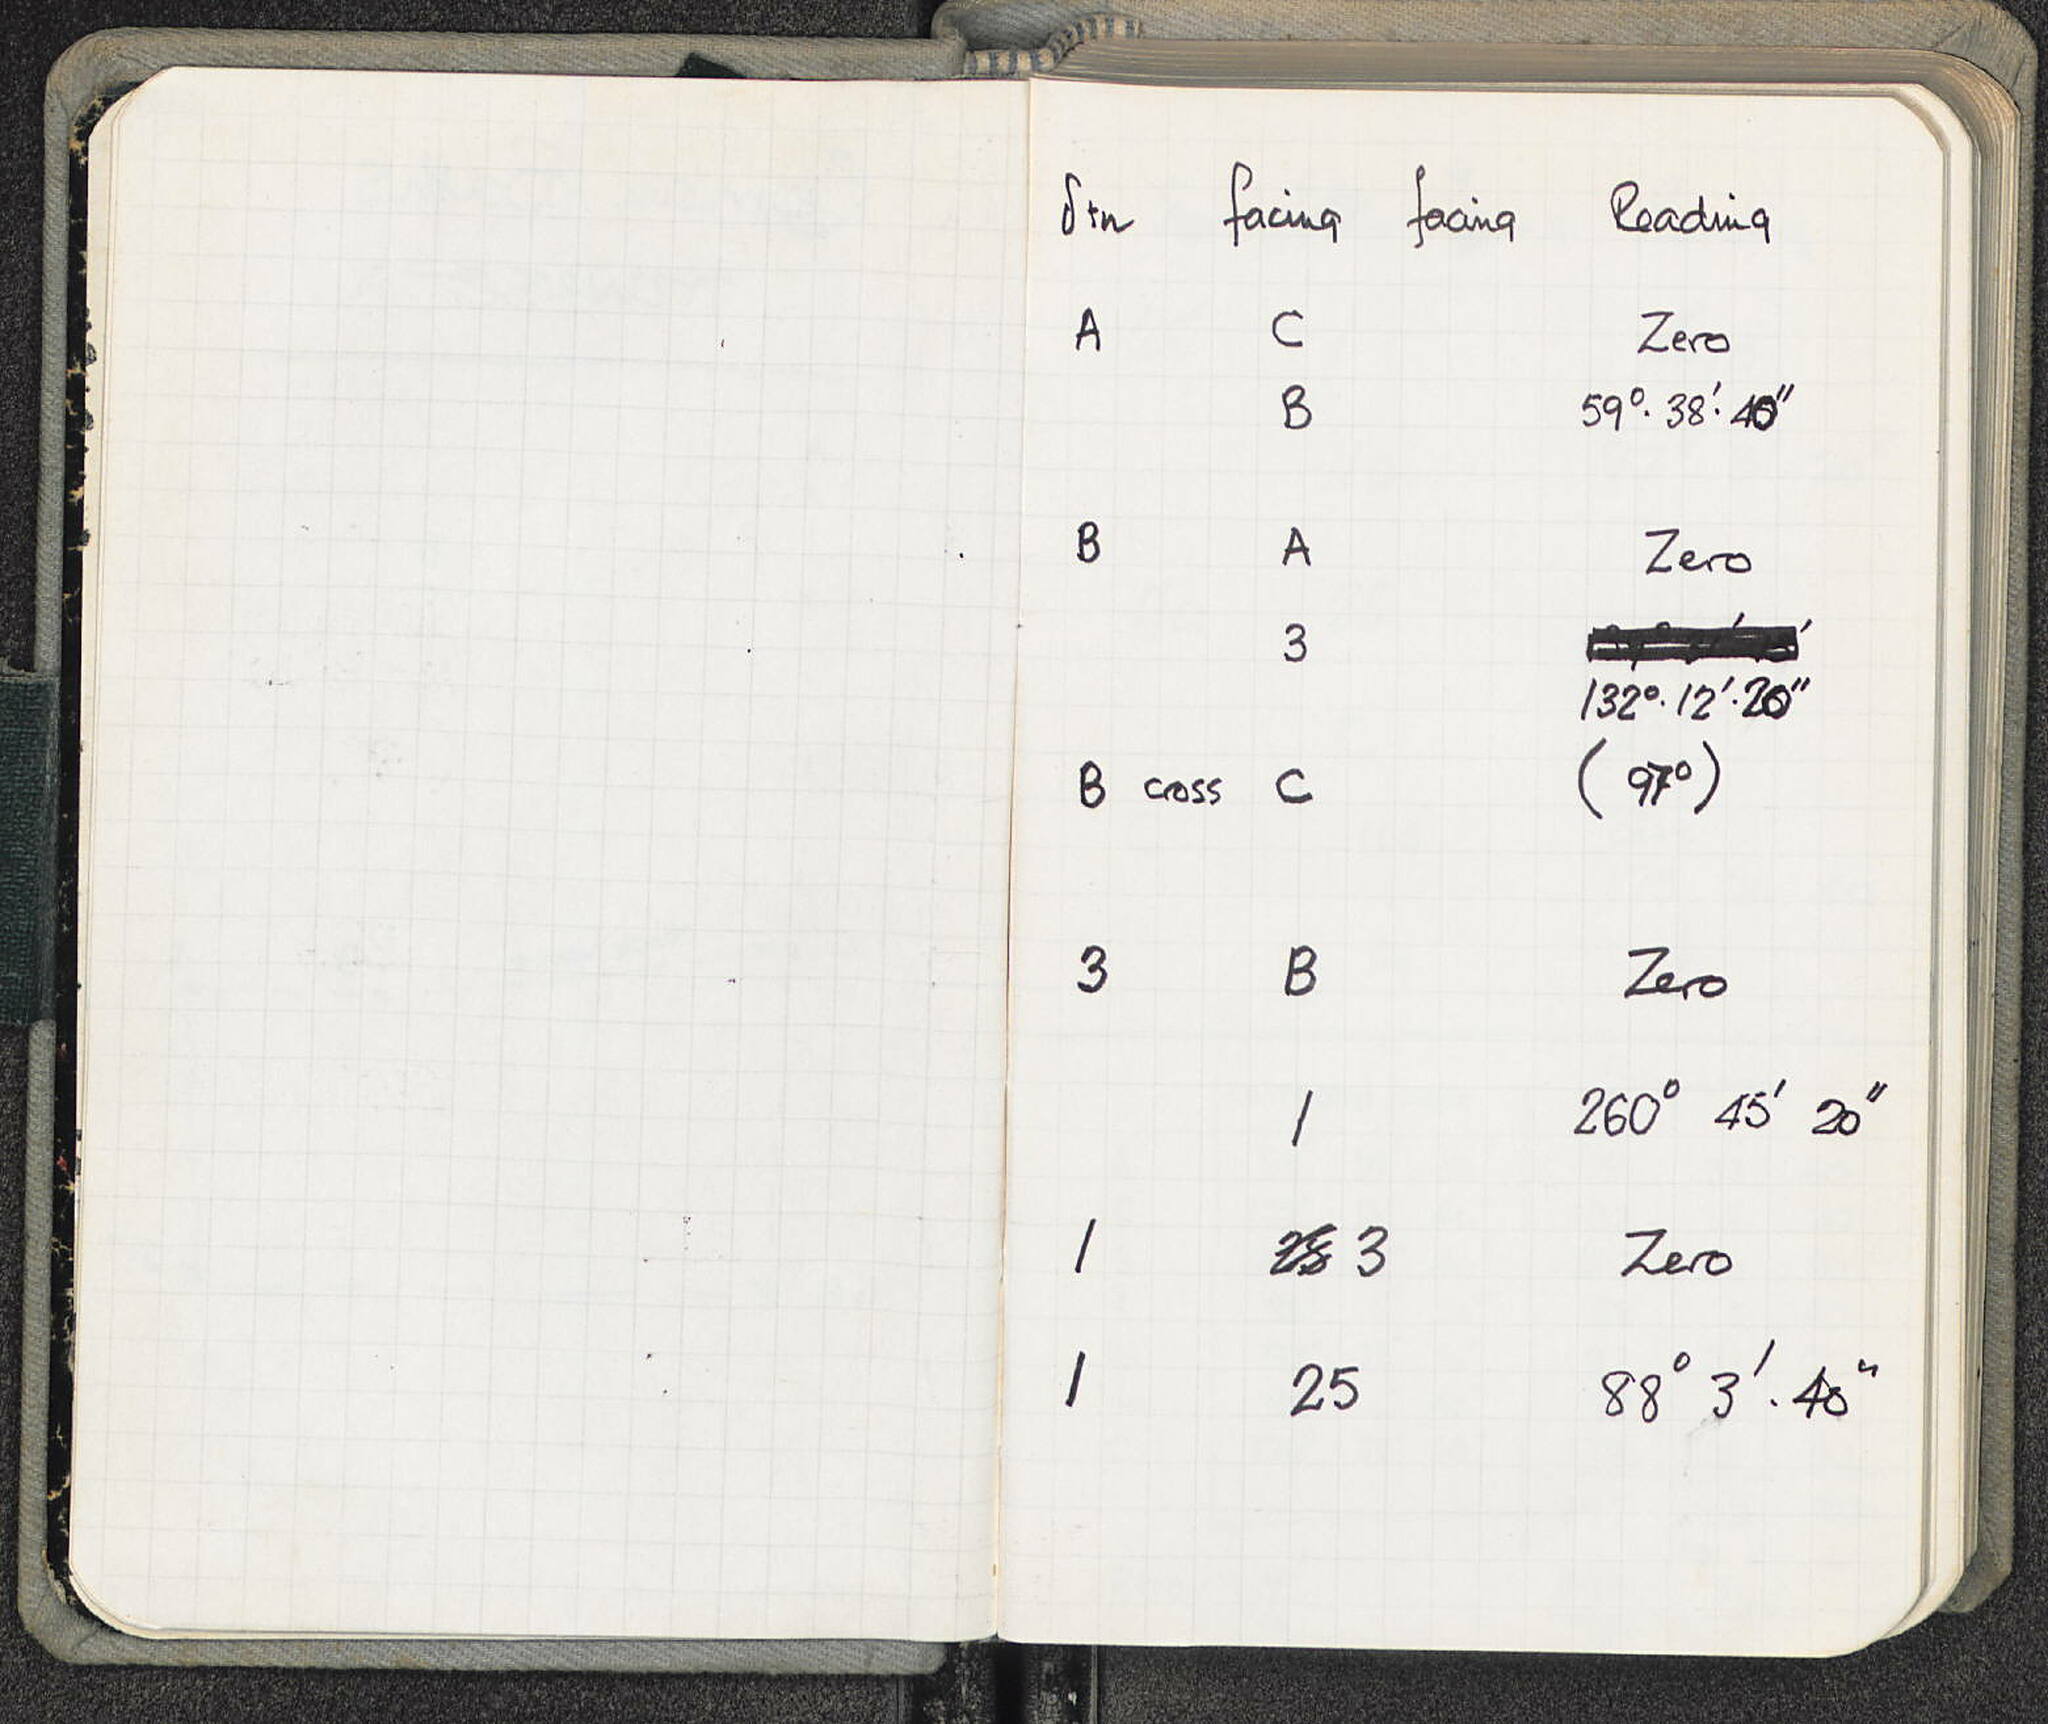 Stn facing facing Reading
A C Zero
B 59°. 38'. 40"
B A Zero
3
132°. 12'. 20"
B cross C (97°)
3 B Zero
1 260° 45' 20"
1 3 Zero
1 25 88° 3'. 40"